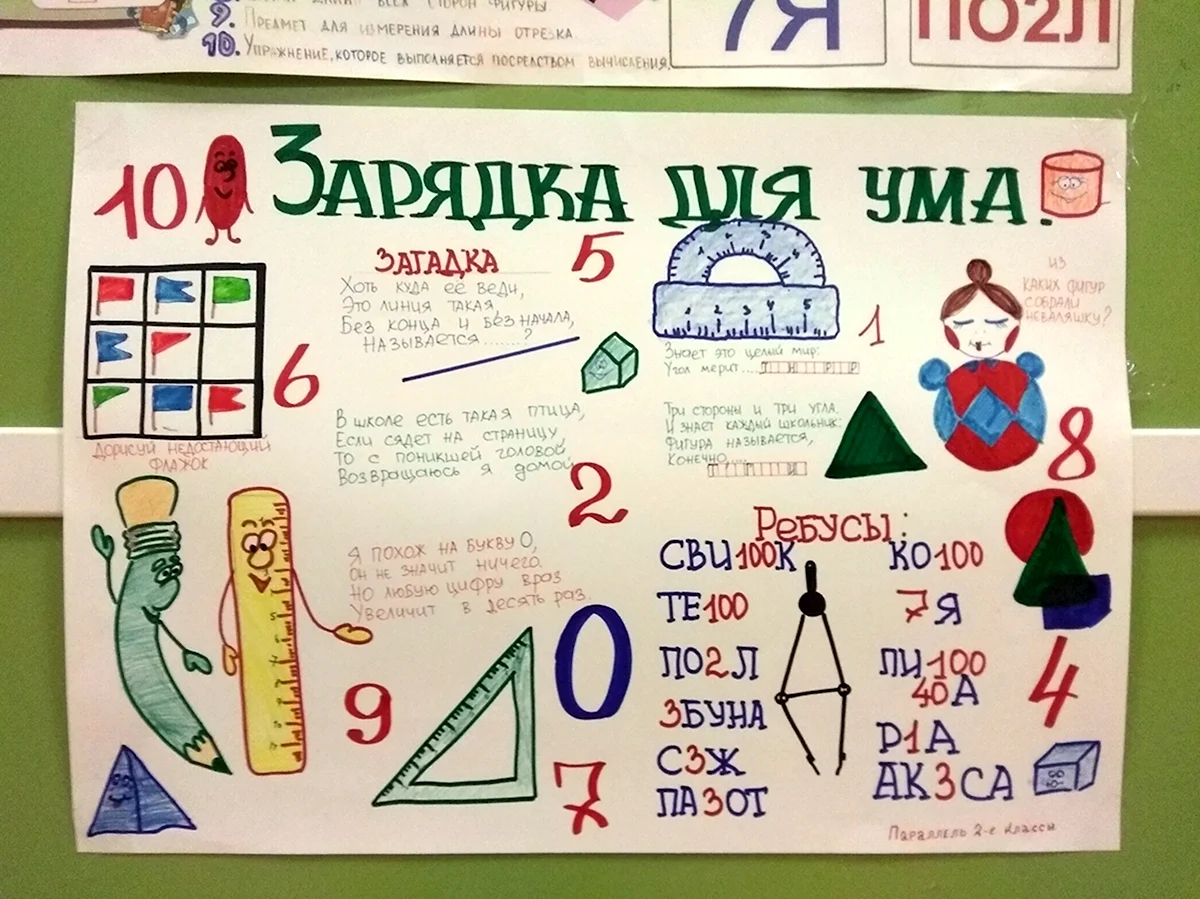 ВСЕХ СТОРОН ФИГУРЫ
9. ПРЕДМЕТ ДЛЯ ИЗМЕРЕНИЯ ДЛИНЫ ОТРЕЗКА.
10. УПРАЖНЕНИЕ, КОТОРОЕ ВЫПОЛНЯЕТСЯ ПОСРЕДСТВОМ ВЫЧИСЛЕНИЯ.
7Я
ПО2Л
10
ЗАРЯДКА ДЛЯ УМА!
ЗАГАДКА
Хоть куда её веди,
Это линия такая,
Без конца и без начала,
Называется......?
5
6
ДОРИСУЙ НЕДОСТАЮЩИЙ
ФЛАЖОК
В школе есть такая птица,
Если сядет на страницу,
То с поникшей головой
Возвращаюсь я домой
2
Я похож на букву О,
Он не значит ничего.
Но любую цифру враз
Увеличит в десять раз.
0
9
7
1 2 3 4 5
1
Знает это целый мир:
Угол мерит....
Три стороны и три угла.
И знает каждый школьник:
Фигура называется,
Конечно....
ИЗ
КАКИХ ФИГУР
СОБРАЛИ
НЕВАЛЯШКУ?
8
Ребусы:
СВИ100К
ТЕ100
ПО2Л
3БУНА
С3Ж
ПА3ОТ
КО100
7Я
ПИ100
40А
Р1А
АК3СА
4
Параллель 2-е классы